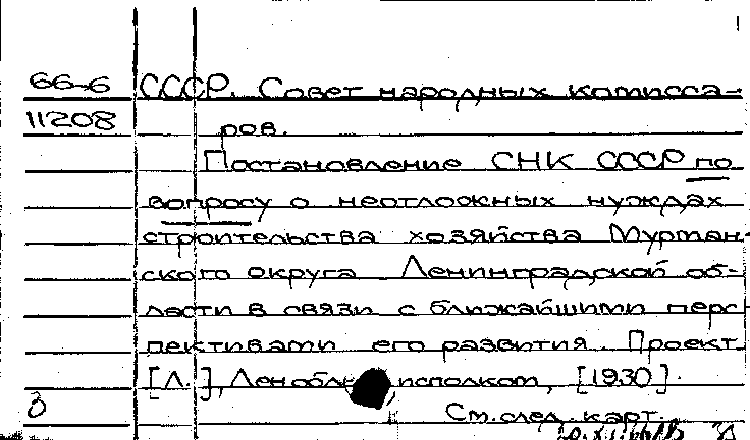 66-6 СССР. Совет народных комисса-
11208 ров.
Постановление СНК СССР по
вопросу о неотложных нуждах
строительства хозяйства Мурман-
ского округа Ленинградской об-
ласти в связи с ближайшими перс-
пективами его развития. Проект.
[Л.], Леноблисполком, [1930].
3 См. след. карт.